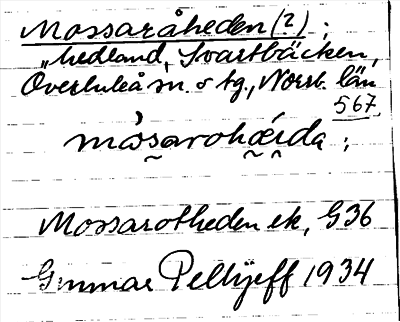 Mossaråheden (?) ;
"hedland, Svartbäcken,
Överluleå sn. o tg., Norrb. län
567
må̀sarohæ̀ida ;
Mossaroheden ek, G36
Gunnar Pellijeff 1934